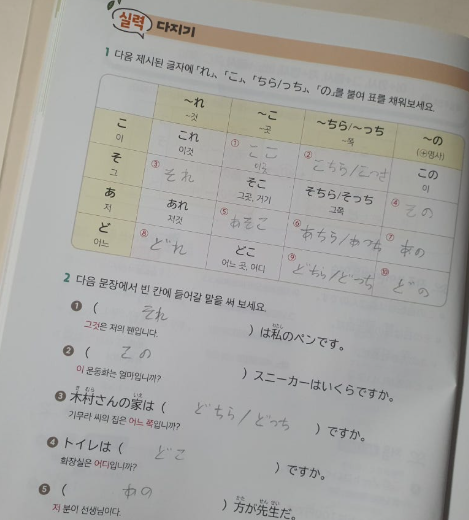 실력 다지기
1 다음 제시된 글자에 「れ」, 「こ」, 「ちら/っち」, 「の」를 붙여 표를 채워보세요.
~れ ~こ ~ちら/~っち ~の
~것 ~곳 ~쪽 (+명사)
こ これ ① ここ ② こちら/こっち この
이 이것 이곳 이
そ ③ それ そこ そちら/そっち ④ その
그 그곳, 거기 그쪽
あ あれ ⑤ あそこ ⑥ あちら/あっち ⑦ あの
저 저것
ど ⑧ どれ どこ ⑨ どちら/どっち ⑩ どの
어느 어느 곳, 어디
2 다음 문장에서 빈 칸에 들어갈 말을 써 보세요.
① ( それ ) は私のペンです。
わたし
그것은 저의 펜입니다.
② ( この ) スニーカーはいくらですか。
이 운동화는 얼마입니까?
き むら いえ
③ 木村さんの家は ( どちら/どっち ) ですか。
기무라 씨의 집은 어느 쪽입니까?
④ トイレは ( どこ ) ですか。
화장실은 어디입니까?
かた せん せい
⑤ ( あの ) 方が先生だ。
저 분이 선생님이다.